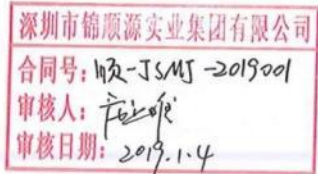 深圳市锦顺源实业集团有限公司
合同号：顺-JSMJ-2019001
审核人：
审核日期：2019.1.4